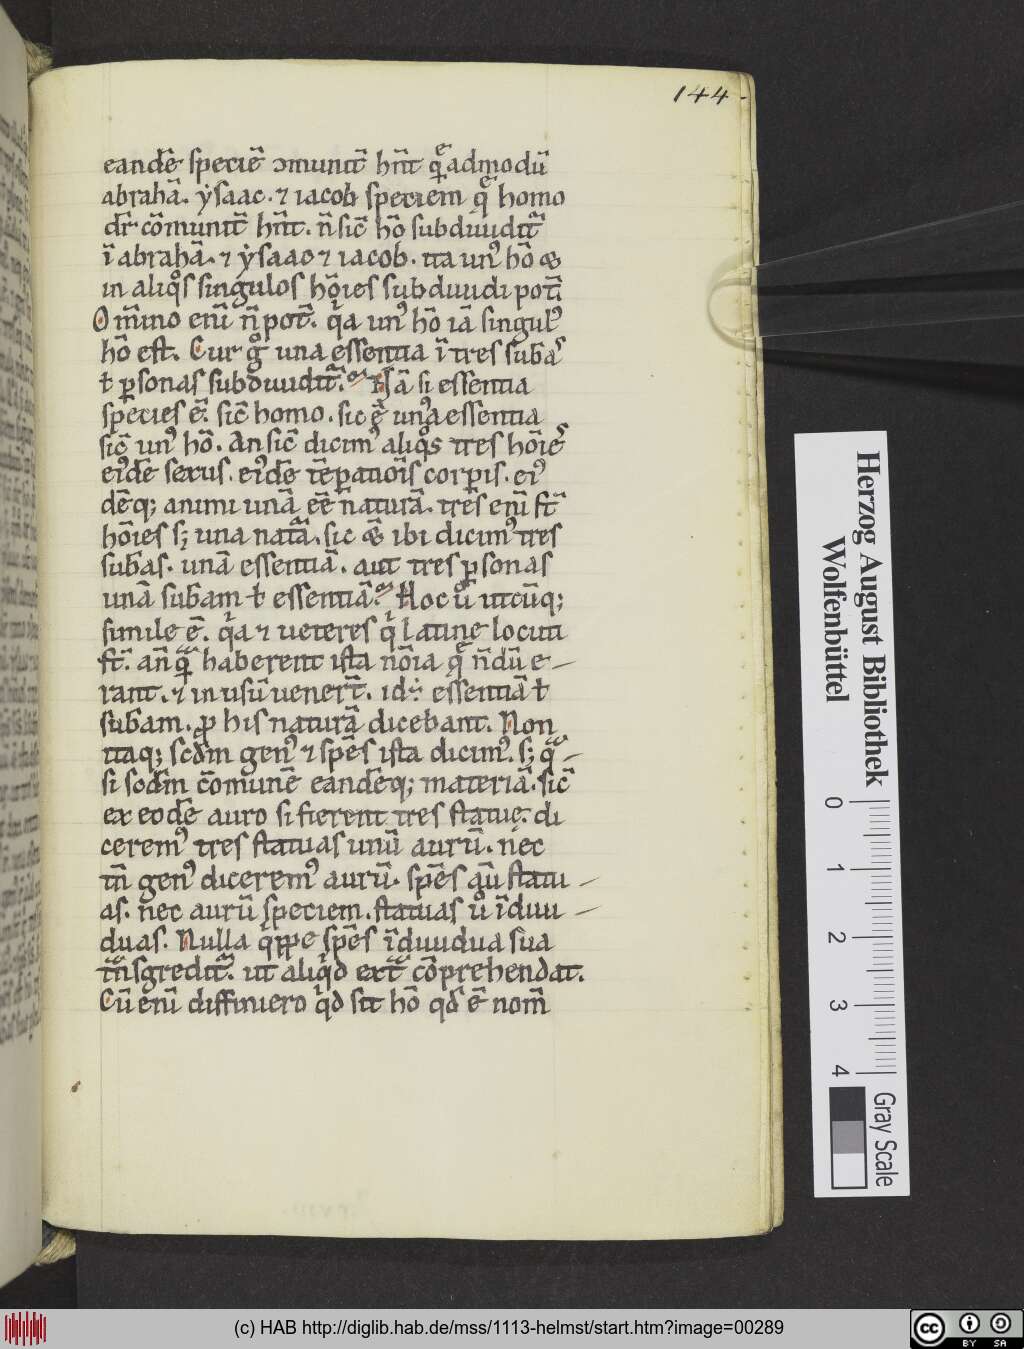 144
eandē speciē ꝯmunit̄ hn̄t quēadmodū
abrahā. ẏsaac. ⁊ iacob speciem que homo
dr̄ cōmunit̄ hn̄t. n̄ sic̄ hō subdiuidit᷑
ī abrahā. ⁊ ẏsaac ⁊ iacob. ita unꝰ hō
in aliqͦs singulos hōies subdiuidi pot̄.
Om̄ino enī n̄ pot̄. qͥa unꝰ hō iā singulꝰ
hō est. Cur gͦ una essentia ī tres subas̄
ł ꝑsonas subdiuidit᷑. Nā si essentia
species ē. sic̄ homo. sic ē una essentia
sic̄ unꝰ hō. An sic̄ dicimꝰ aliqͦs tres hōies
eiꝰdē sexus. eiꝰdē tēꝑationis corꝑis. eiꝰ
dēq; animi unā eē naturā. tres enī st̄
hōies s; una natā. sic ibi dicimꝰ tres
subas. unā essentiā. aut tres ꝑsonas
unā subam ł essentiā. Hoc uͦ utcūq;
simile ē. qͥa ⁊ ueteres qͥ latine locuti
st̄. an̄quā haberent ista nōia que n̄ dū e-
rant. ⁊ in usū uenert̄. id ÷ essentiā ł
subam. ꝓ his naturā dicebant. Non
itaq; scdm genꝰ ⁊ spēs ista dicimꝰ. s; qᷓ-
si scdm cōmunē eandēq; materiā. sic̄
ex eodē auro si fierent tres statuę. di
ceremꝰ tres statuas unū aurū. nec
tn̄ genꝰ diceremꝰ aurū. spēs aū statu-
as. nec aurū speciem. statuas uͦ īdiui-
duas. Nulla qͥppe spēs īdiuidua sua
tn̄sgredit᷑. ut aliqͥd extᷓ cōprehendat.
Cū enī diffiniero qͥd sit hō qd ē nom̄
Herzog August Bibliothek
Wolfenbüttel
0 1 2 3 4
Gray Scale
(c) HAB http://diglib.hab.de/mss/1113-helmst/start.htm?image=00289
cc BY SA